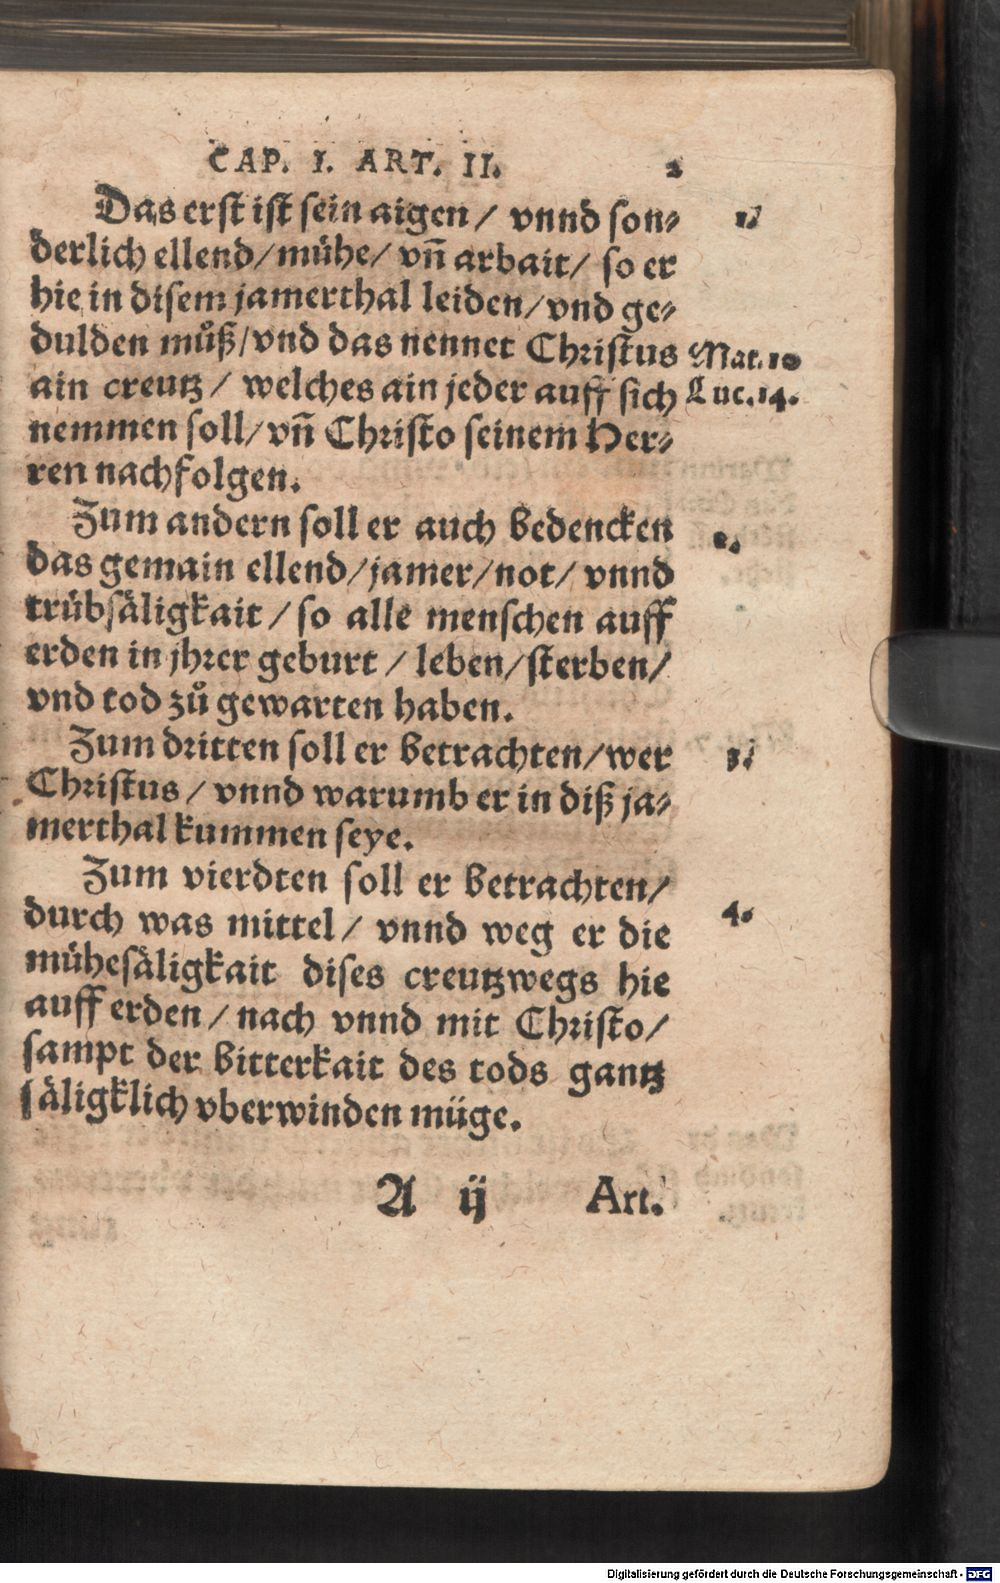 CAP. I. ART. II. 2
Das erst ist sein aigen / vnnd son⸗ 1.
derlich ellend / mühe / vñ arbait / so er
hie in disem jamerthal leiden / vnd ge⸗
dulden můß / vnd das nennet Christus Mat. 10
ain creutz / welches ain jeder auff sich Luc. 14.
nemmen soll / vñ Christo seinem Her⸗
ren nachfolgen.
Zum andern soll er auch bedencken 2.
das gemain ellend / jamer / not / vnnd
trübsäligkait / so alle menschen auff
erden in jhrer geburt / leben / sterben /
vnd tod zů gewarten haben.
Zum dritten soll er betrachten / wer 3.
Christus / vnnd warumb er in diß ja⸗
merthal kummen seye.
Zum vierdten soll er betrachten /
durch was mittel / vnnd weg er die 4.
mühesäligkait dises creutzwegs hie
auff erden / nach vnnd mit Christo /
sampt der bitterkait des tods gantz
säligklich vberwinden müge.
A ij Art.
Digitalisierung gefördert durch die Deutsche Forschungsgemeinschaft - DFG